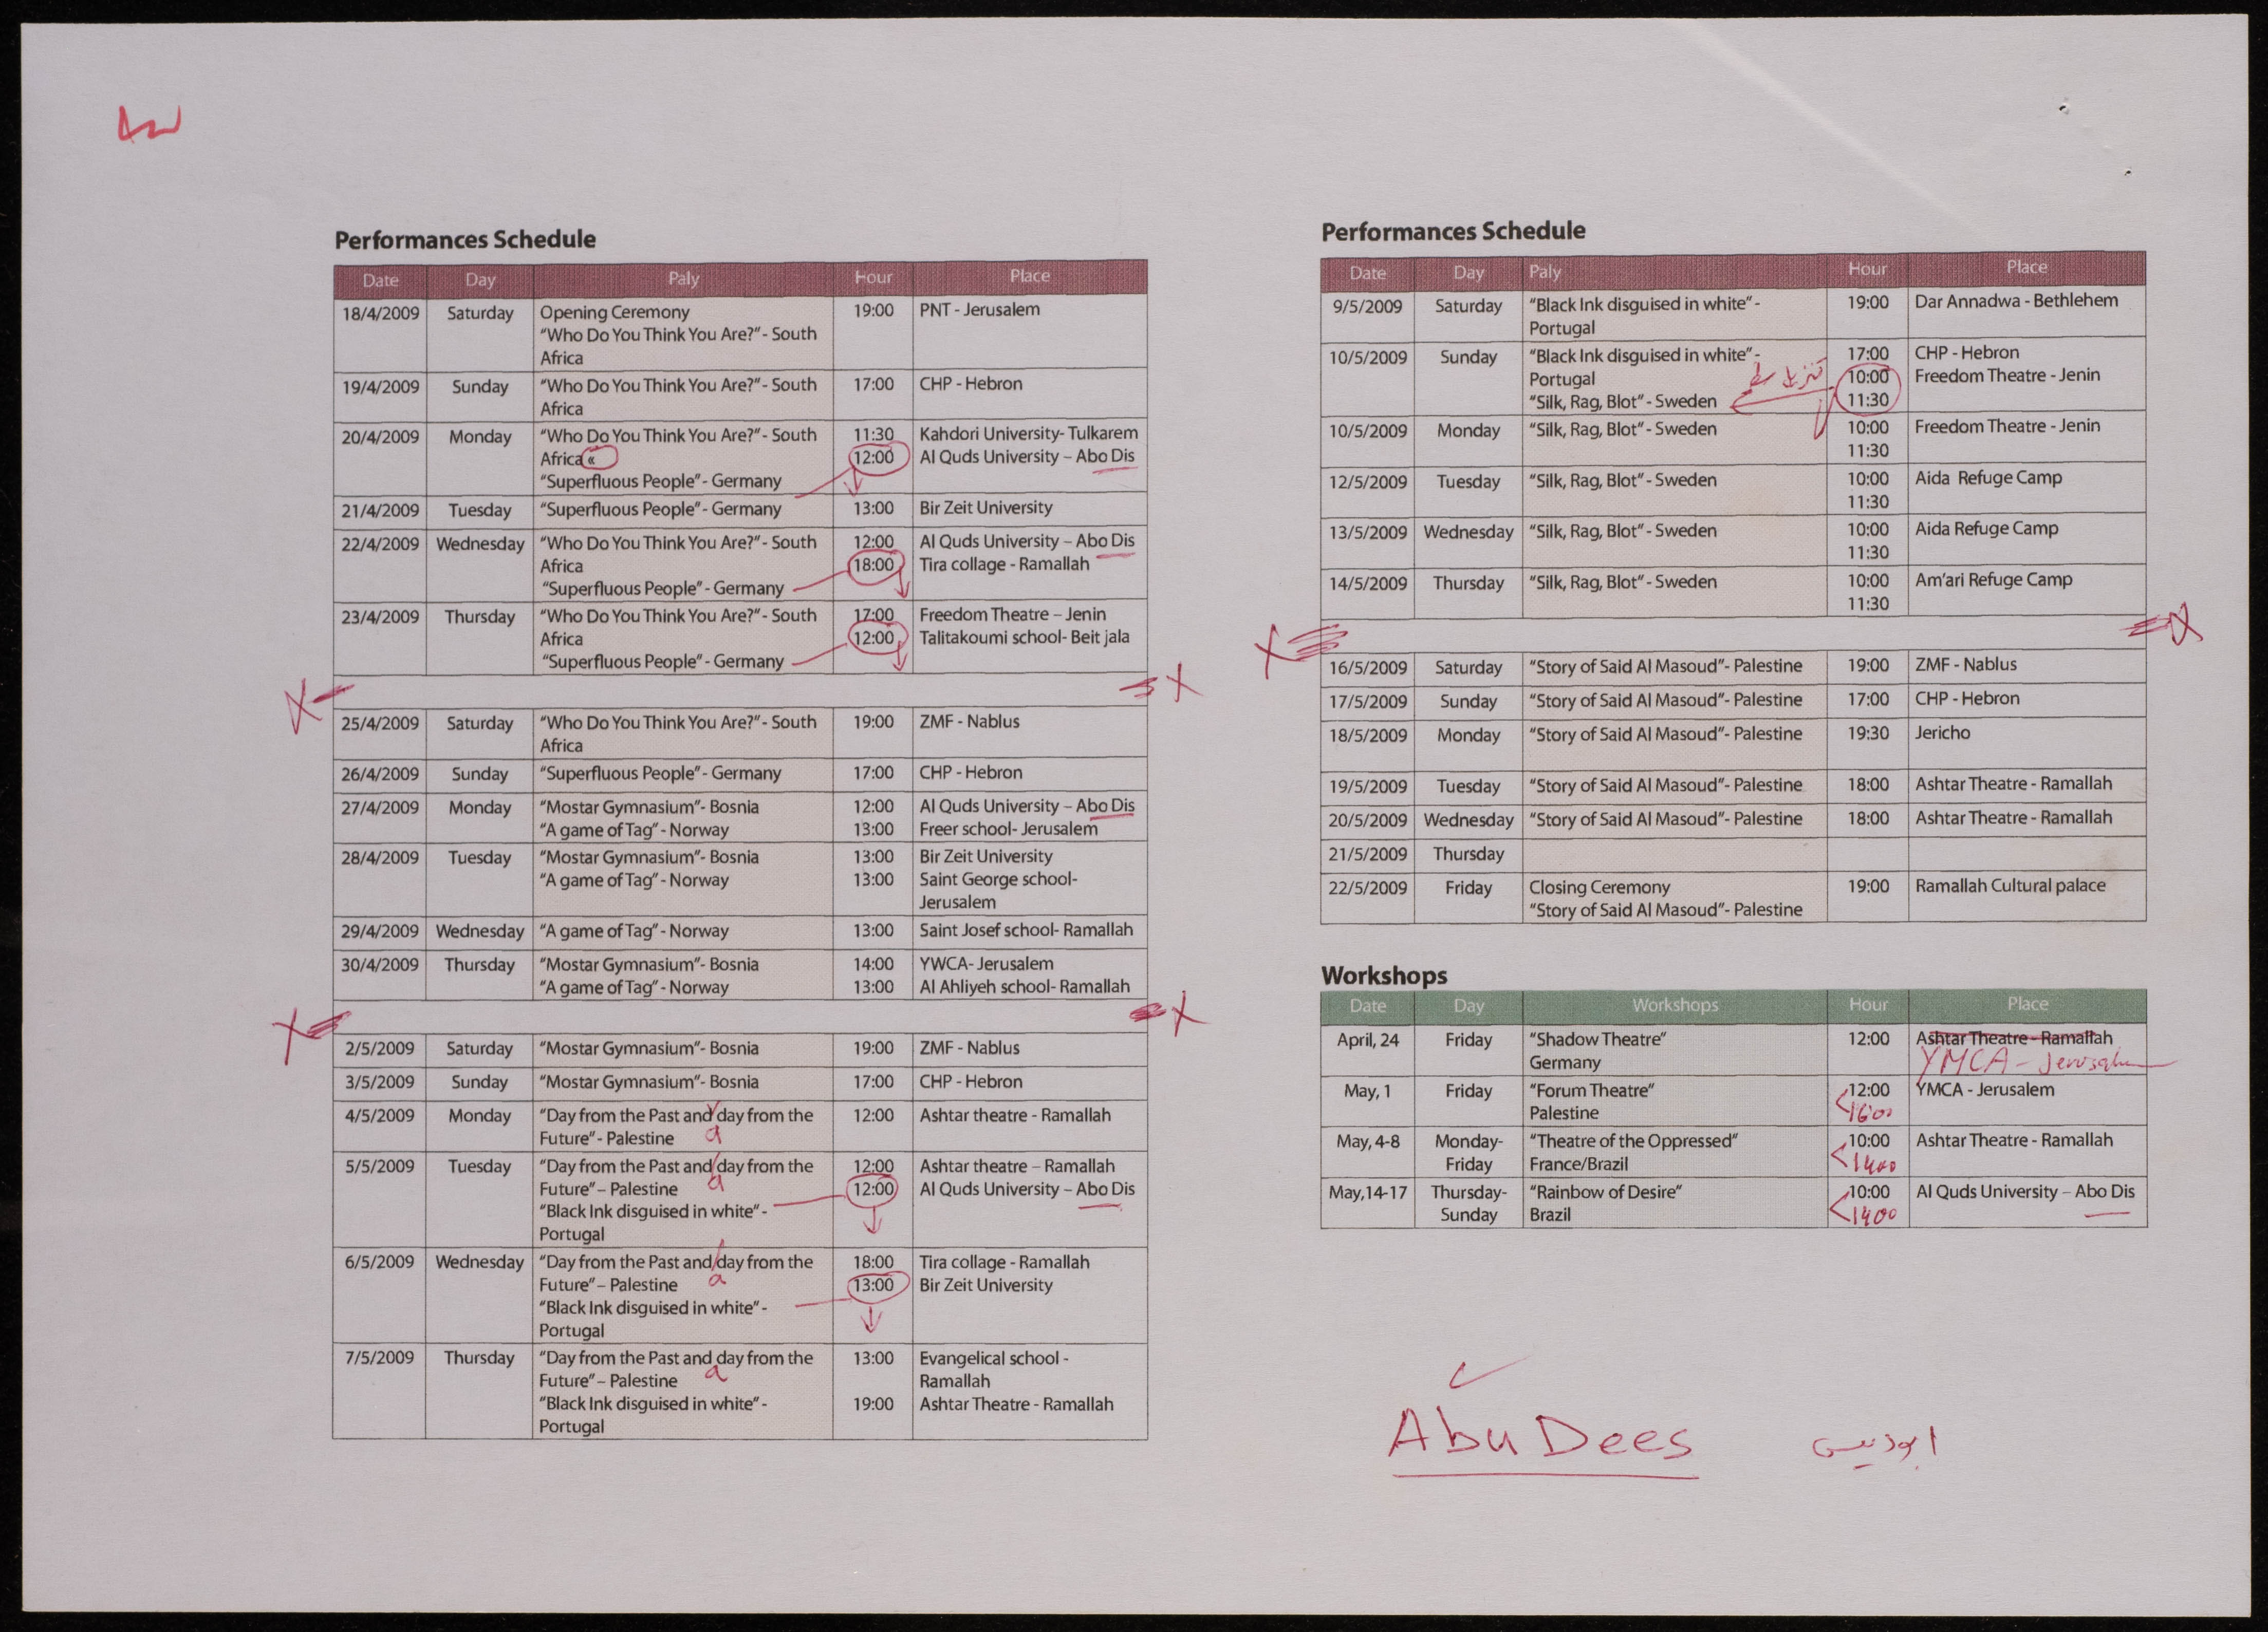 Performances Schedule
Date Day Paly Hour Place
18/4/2009 Saturday Opening Ceremony 19:00 PNT - Jerusalem
"Who Do You Think You Are?"- South
Africa
19/4/2009 Sunday "Who Do You Think You Are?"- South 17:00 CHP - Hebron
Africa
20/4/2009 Monday "Who Do You Think You Are?"- South 11:30 Kahdori University- Tulkarem
Africa « 12:00 Al Quds University – Abo Dis
"Superfluous People"- Germany
21/4/2009 Tuesday "Superfluous People"- Germany 13:00 Bir Zeit University
22/4/2009 Wednesday "Who Do You Think You Are?"- South 12:00 Al Quds University – Abo Dis
Africa 18:00 Tira collage - Ramallah
"Superfluous People"- Germany
23/4/2009 Thursday "Who Do You Think You Are?"- South 17:00 Freedom Theatre – Jenin
Africa 12:00 Talitakoumi school- Beit jala
"Superfluous People"- Germany
X X
25/4/2009 Saturday "Who Do You Think You Are?"- South 19:00 ZMF - Nablus
Africa
26/4/2009 Sunday "Superfluous People"- Germany 17:00 CHP - Hebron
27/4/2009 Monday "Mostar Gymnasium"- Bosnia 12:00 Al Quds University – Abo Dis
"A game of Tag"- Norway 13:00 Freer school- Jerusalem
28/4/2009 Tuesday "Mostar Gymnasium"- Bosnia 13:00 Bir Zeit University
"A game of Tag"- Norway 13:00 Saint George school-
Jerusalem
29/4/2009 Wednesday "A game of Tag"- Norway 13:00 Saint Josef school- Ramallah
30/4/2009 Thursday "Mostar Gymnasium"- Bosnia 14:00 YWCA- Jerusalem
"A game of Tag"- Norway 13:00 Al Ahliyeh school- Ramallah
X X
2/5/2009 Saturday "Mostar Gymnasium"- Bosnia 19:00 ZMF - Nablus
3/5/2009 Sunday "Mostar Gymnasium"- Bosnia 17:00 CHP - Hebron
4/5/2009 Monday "Day from the Past and day from the 12:00 Ashtar theatre - Ramallah
Future"- Palestine a
5/5/2009 Tuesday "Day from the Past and day from the 12:00 Ashtar theatre – Ramallah
Future"– Palestine a 12:00 Al Quds University – Abo Dis
"Black Ink disguised in white"-
Portugal
6/5/2009 Wednesday "Day from the Past and day from the 18:00 Tira collage - Ramallah
Future"– Palestine a 13:00 Bir Zeit University
"Black Ink disguised in white"-
Portugal
7/5/2009 Thursday "Day from the Past and day from the 13:00 Evangelical school -
Future"– Palestine a Ramallah
"Black Ink disguised in white"- 19:00 Ashtar Theatre - Ramallah
Portugal
Performances Schedule
Date Day Paly Hour Place
9/5/2009 Saturday "Black Ink disguised in white"- 19:00 Dar Annadwa - Bethlehem
Portugal
10/5/2009 Sunday "Black Ink disguised in white"- 17:00 CHP - Hebron
Portugal 10:00 Freedom Theatre - Jenin
"Silk, Rag, Blot"- Sweden 11:30
10/5/2009 Monday "Silk, Rag, Blot"- Sweden 10:00 Freedom Theatre - Jenin
11:30
12/5/2009 Tuesday "Silk, Rag, Blot"- Sweden 10:00 Aida Refuge Camp
11:30
13/5/2009 Wednesday "Silk, Rag, Blot"- Sweden 10:00 Aida Refuge Camp
11:30
14/5/2009 Thursday "Silk, Rag, Blot"- Sweden 10:00 Am'ari Refuge Camp
11:30
X X
16/5/2009 Saturday "Story of Said Al Masoud"- Palestine 19:00 ZMF - Nablus
17/5/2009 Sunday "Story of Said Al Masoud"- Palestine 17:00 CHP - Hebron
18/5/2009 Monday "Story of Said Al Masoud"- Palestine 19:30 Jericho
19/5/2009 Tuesday "Story of Said Al Masoud"- Palestine 18:00 Ashtar Theatre - Ramallah
20/5/2009 Wednesday "Story of Said Al Masoud"- Palestine 18:00 Ashtar Theatre - Ramallah
21/5/2009 Thursday
22/5/2009 Friday Closing Ceremony 19:00 Ramallah Cultural palace
"Story of Said Al Masoud"- Palestine
Workshops
Date Day Workshops Hour Place
April, 24 Friday "Shadow Theatre" 12:00 Ashtar Theatre - Ramallah
Germany YMCA - Jerusalem
May, 1 Friday "Forum Theatre" 12:00 YMCA - Jerusalem
Palestine 16:00
May, 4-8 Monday- "Theatre of the Oppressed" 10:00 Ashtar Theatre - Ramallah
Friday France/Brazil 1400
May,14-17 Thursday- "Rainbow of Desire" 10:00 Al Quds University – Abo Dis
Sunday Brazil 1400
Abu Dees ابوديس